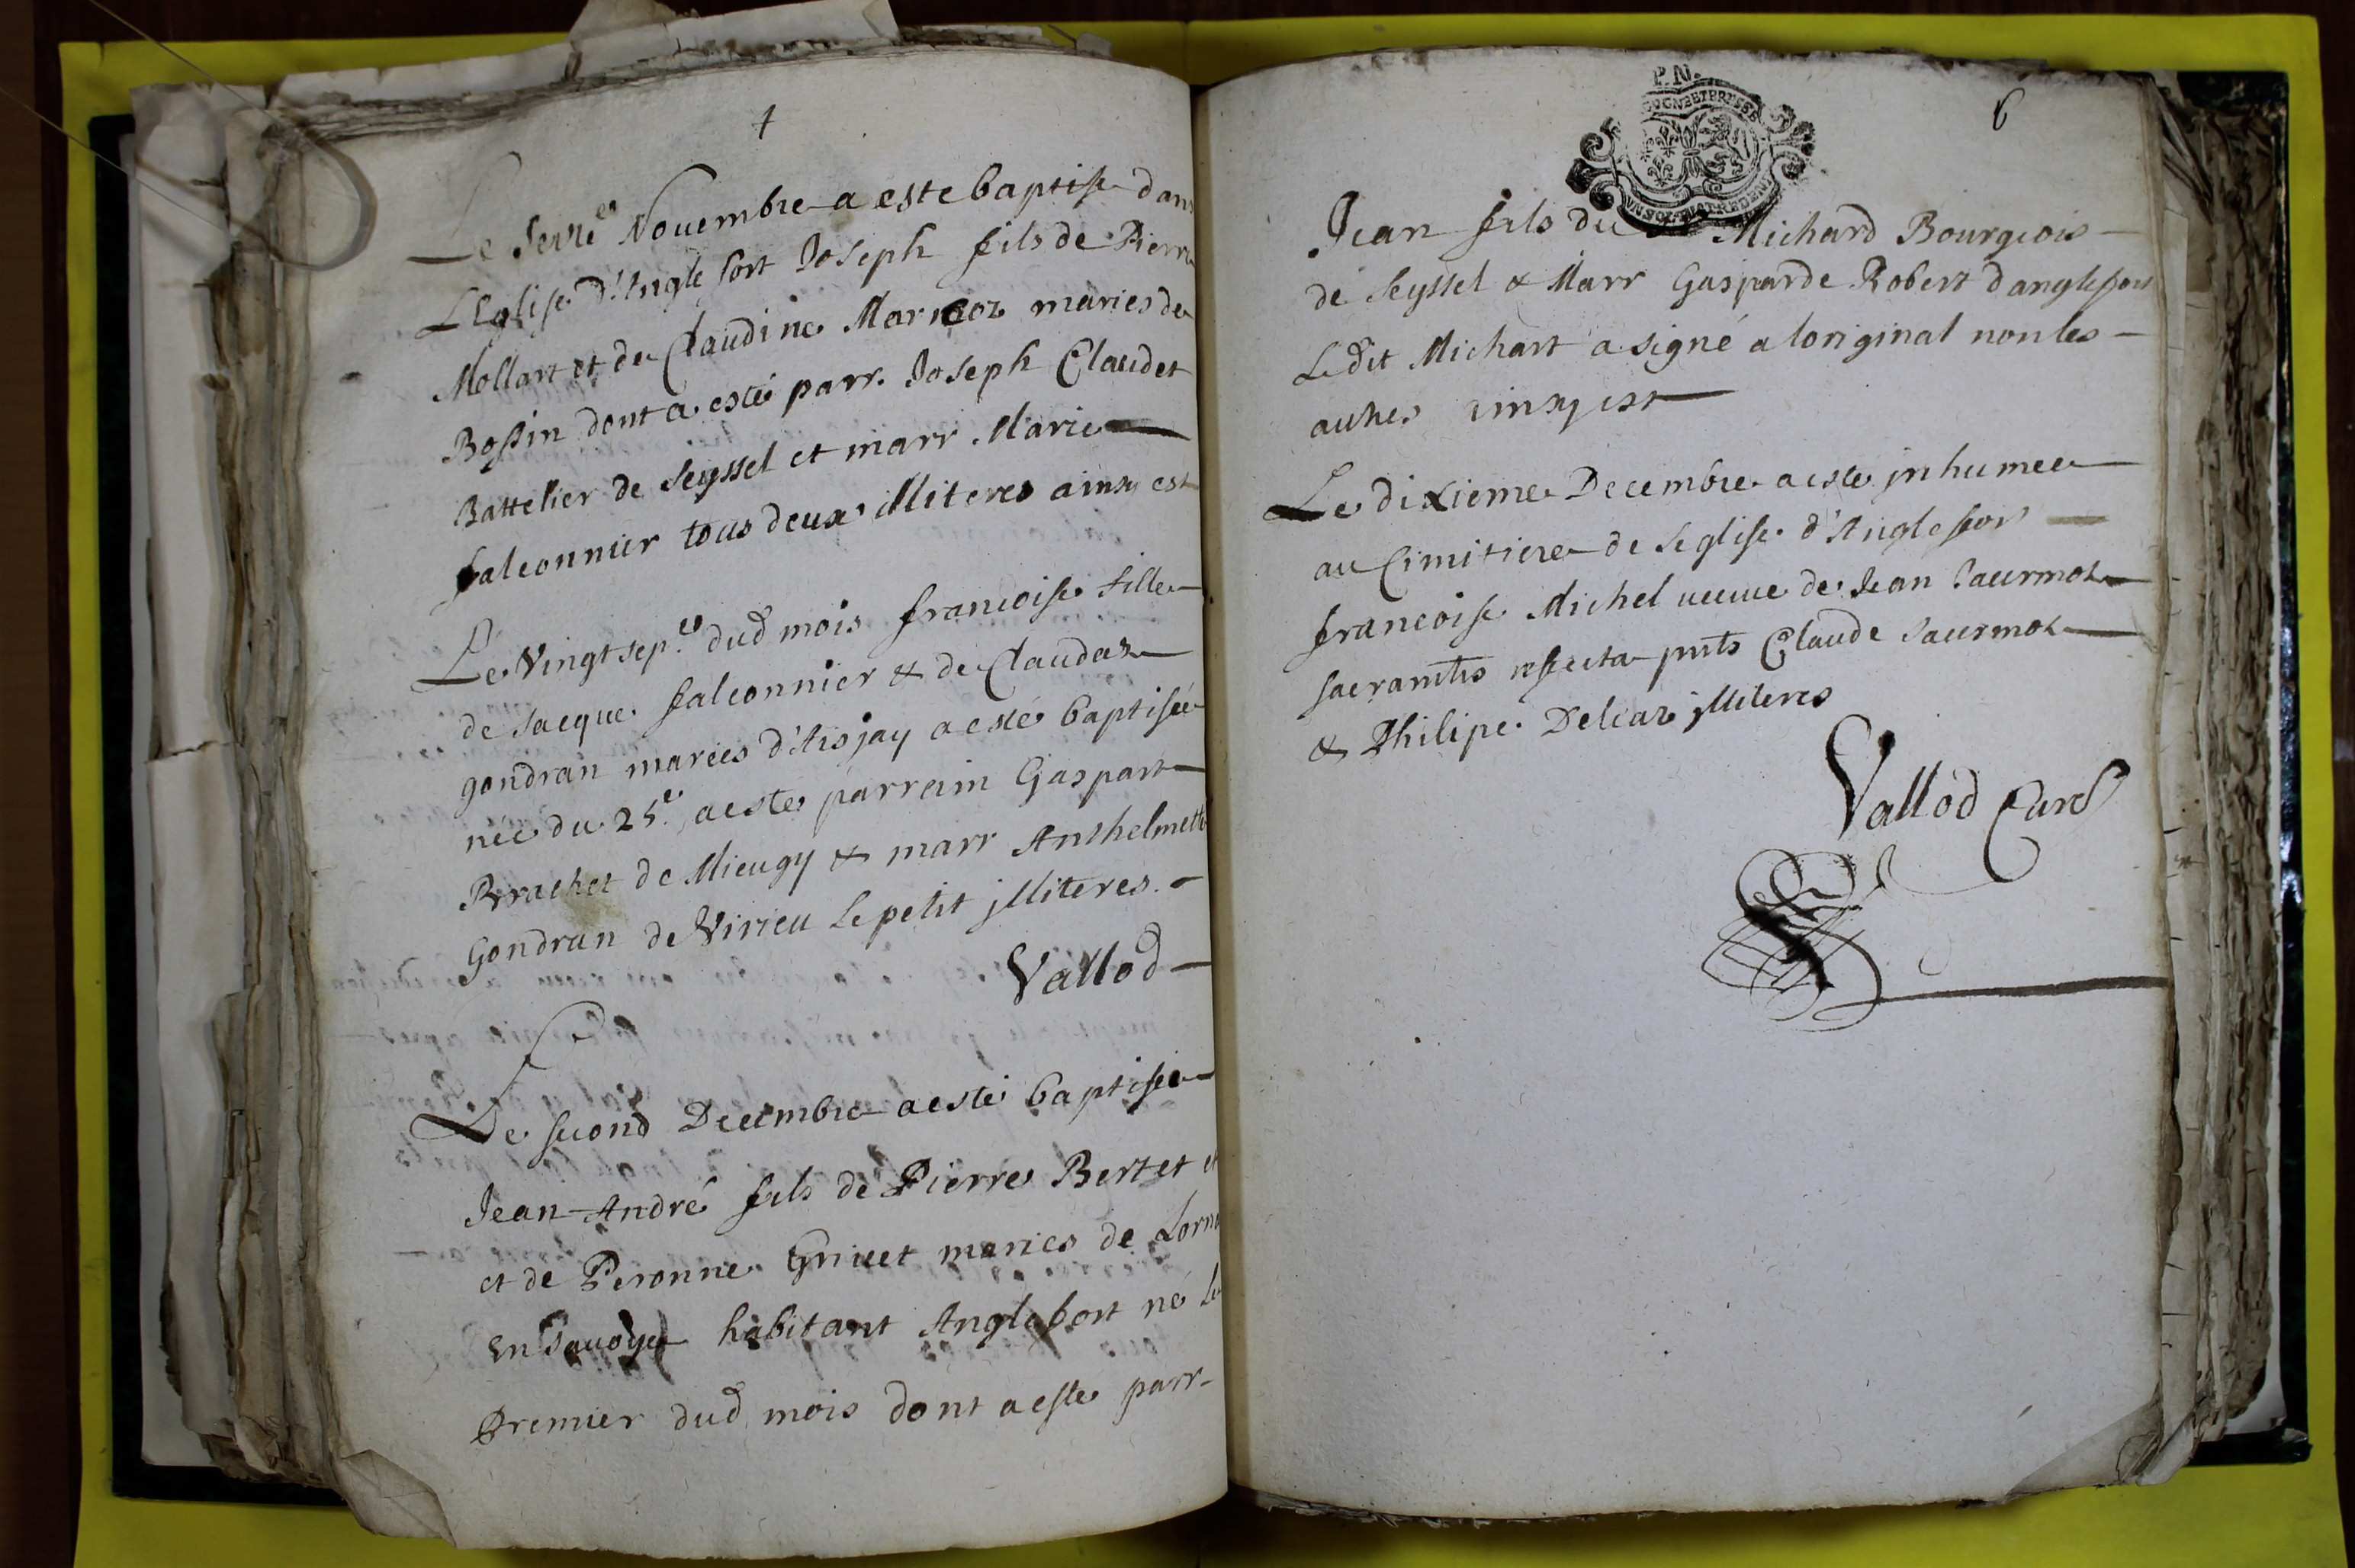 Le Novembre a este baptise dans
L'Eglise d'Anglefort Joseph fils de Pierre
Mollart et de Claudine mariés de
Bossin dont a esté parr. Joseph Claudet
Battelier de Seyssel et marr. Marie
falconnier tous deux illiteres ainsy est
Le Vingt sep.e dud mois francoise fille
de Jacque falconnier & de Claudaz
gondran mariés d'Aisjay a esté baptisée
née du 25.e a este parrain Gaspart
de Mieugy & marr Anthelmette
Gondran de Virieu Le petit jlliteres.
Vallod
Le second Decembre a esté baptisé
Jean André fils de Pierre Bertet et
et de Peronne Gricet mariés de
En Savoye habitant Anglefort né le
Premier dud mois dont a este parr
6
P. N.
Jean fils du Michard Bourgeois
de Seyssel & Marr Gasparde Robert danglefort
Ledit Michart a signé a loriginal non les
autres ainsy est
Le dixieme Decembre a este jnhumee
au Cimitiere de Leglise d'Anglefort
francoise Michel veuve de Jean Jaurmoz
sacramtis refecta pnts Claude Jaurmoz
& Philipe Delcaz jlliteres
Vallod Curé